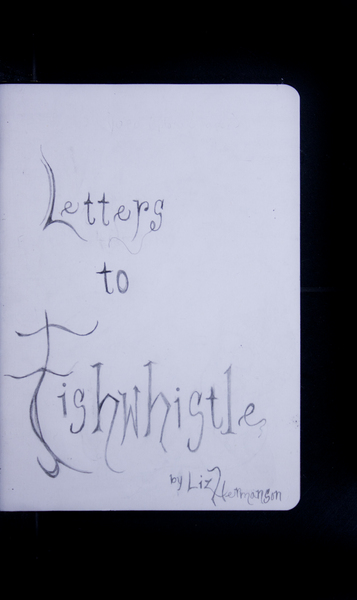 Letters
to
Fishwhistle
by Liz Hermanson